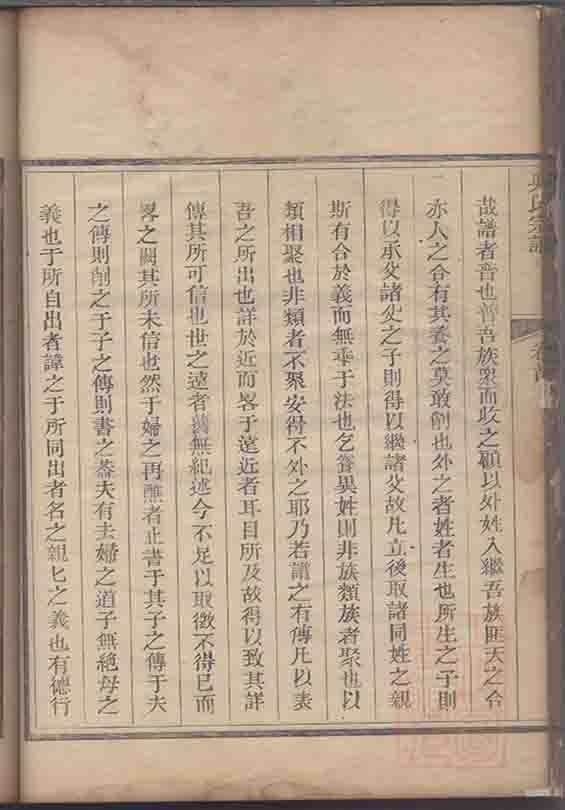 哉譜者普也普吾族眾而收之顧以外姓入繼吾族匪天之合
亦人之合有其養之莫敢削也外之者姓者生也所生之子則
得以承父諸父之子則得以繼諸父故凡立後取諸同姓之親
斯有合於義而無乖于法也乞養異姓則非族類族者聚也以
類相聚也非類者不聚安得不外之耶乃若譜之有傳凡以表
吾之所出也詳於近而畧于遠近者耳目所及故得以致其詳
傳其所可信也世之遠者舊無紀述今不足以取徵不得已而
畧之闕其所未信也然于婦之再醮者止書于其子之傳于夫
之傳則削之于子之傳則書之蓋夫有去婦之道子無絕母之
義也于所自出者諱之于所同出者名之親匕之義也有德行
氏宗譜
卷首